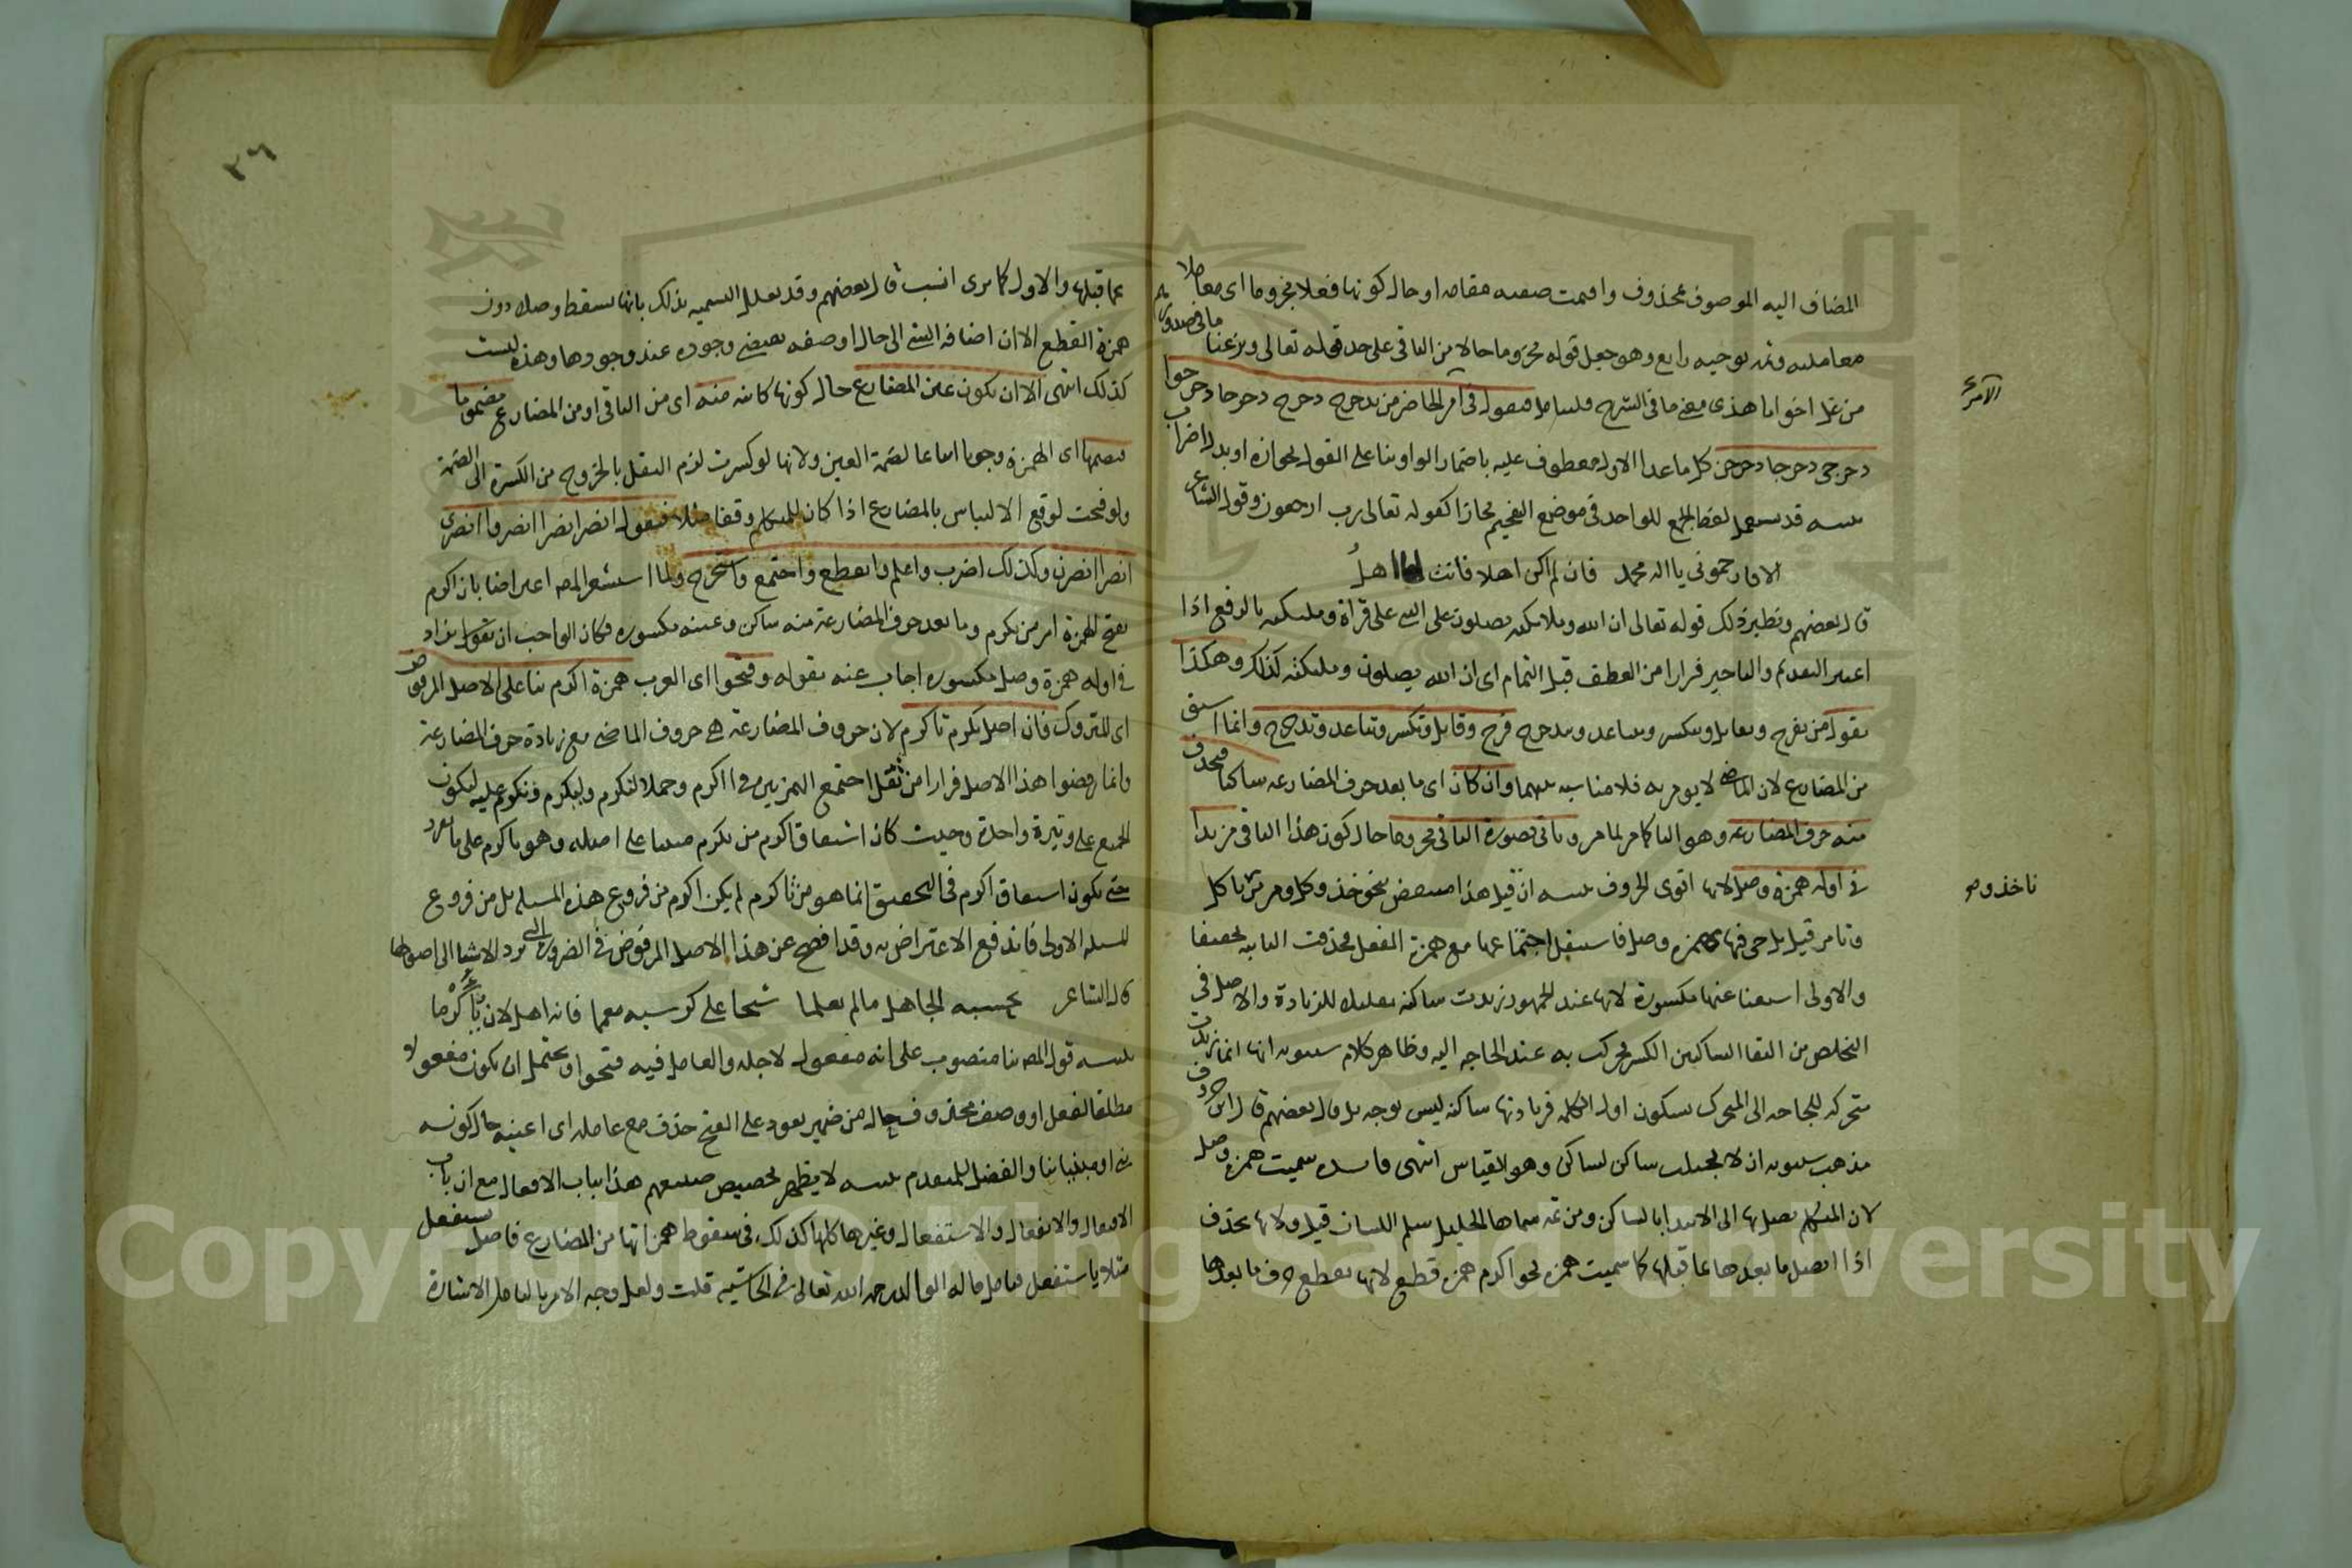 المضاف اليه الموصوف محذوف واقيمت صفته مقامه او حال كونها فعلا مجزوما اى معاملا
معاملته وثم توجيه رابع وهو جعل قوله مجزوما حالا من الباقى على حد قوله تعالى ونزعنا ما فى صدورهم
من غل اخوانا هذى معنى ما فى الشرح فليتامل فتقول فى امر الحاضر من تدحرج دحرج دحرجا دحرجوا
الامر
دحرجى دحرجا دحرجن كل ما عدا الاول معطوف عليه باضمار الواو بنا على القول بجوازه او بدل اضراب
تنبيه قد يستعمل لفظ الجمع للواحد فى موضع التفخيم مجازا كقوله تعالى رب ارجعون وقول الشاعر
الا فارحمونى يا اله محمد فان لم اكن اهلا فانت اهل
قال بعضهم ونظير ذلك قوله تعالى ان الله وملائكته يصلون على النبى على قراة وملائكته بالرفع اذا
اعتبر التقديم والتاخير فرارا من العطف قبل التمام اى ان الله يصلون وملئكته كذلك وهكذا
تقول من تفرح وتقابل وتتكسر وتتباعد وتتدحرج فرح وقابل وتكسر وتباعد وتدحرج وانما اشتق
من المضارع لان الماضى لا يومر به فلا مناسبه بينهما وان كان اى ما بعد حرف المضارعه ساكنا فتحذف
منه حرف المضارعه وهو التا كما مر لما مر وتاتى بصورة الباقى مجزوما حال كون هذا الباقى مزيدا
فى اوله همزة وصل لانها اقوى الحروف تنبيه ان قيل هذا منتقض بنحو خذ وكل ومر من تاكل
تاخذ و صح
وتامر قيل بل جى فيها بهمزة وصل فاستثقل اجتماعها مع همزة الفعل فحذفت الثانيه تخفيفا
والاولى استغنا عنها مكسورة لانها عند الجمهور زيدت ساكنه تقليلا للزيادة والاصل فى
التخلص من التقا الساكنين الكسر فحركت به عند الحاجه اليه وظاهر كلام سيبويه انها انما زيدت
متحركه للحاجه الى المتحرك لسكون اول الكلمه فزيادتها ساكنه ليس بوجه بل قال بعضهم قال ابن حروف
مذهب سيبويه اذ لا يجتلب ساكن لساكن وهو القياس انتهى فايده سميت همزة وصل
لان المتكلم يصل بها الى الابتدا بالساكن ومن ثم سماها الخليل سلم اللسان قيل ولانها تحذف
اذا اتصل ما بعدها بما قبلها كما سميت همزه نحو اكرم همزة قطع لانها تقطع حرف ما بعدها
٢٦
عما قبلها والاول كما ترى انسب قال بعضهم وقد تعلل التسميه بذلك بانها تسقط وصلا دون
همزة القطع الا ان اضافه الشى الى حال او صفه يقتضى وجوده عند وجودها وهذه ليست
كذلك انتهى الا ان يكون عين المضارع حال كونها كاينه منه اى من الباقى او من المضارع مضموما
فتضمها اى الهمزة وجوبا اتباعا لضمة العين ولانها لو كسرت لزم الثقل بالخروج من الكسرة الى الضمة
ولو فتحت لوقع الالتباس بالمضارع اذا كان للمتكلم وقفا مثلا فتقول انصر انصرا انصروا انصرى
انصرا انصرن وكذلك اضرب واعلم وانقطع واجتمع واستخرج ولما استشعر المص اعتراضا بان اكرم
بفتح الهمزة امر من تكرم وما بعد حرف المضارعة منه ساكن وعينه مكسوره فكان الواجب ان تقول بزاد
فى اوله همزة وصل مكسوره اجاب عنه بقوله وفتحوا اى العرب همزة اكرم بنا على الاصل المرفوض
اى المتروك فان اصل تكرم تاكرم لان حروف المضارعة هى حروف الماضى مع زيادة حرف المضارعة
وانما رفضوا هذا الاصل فرارا من ثقل اجتماع الهمزتين فى ااكرم وحملا لتكرم ويكرم ونكرم عليه ليكون
الجميع على وتيرة واحدة وحيث كان اشتقاق اكرم من تكرم مبنيا على اصله وهو تاكرم على ما تقرر
حتى يكون اشتقاق اكرم فى التحقيق انما هو من تاكرم لم يكن اكرم من فروع هذه المسئله بل من فروع
المسئله الاولى فاندفع الاعتراض به وقد افصح عن هذا الاصل المرفوض فى الضرورة التى ترد الاشيا الى اصولها
قال الشاعر يحسبه الجاهل ما لم يعلما شيخا على كرسيه معمما فانه اهل لان يؤكرما
تنبيه قول المص بنا منصوب على انه مفعول لاجله والعامل فيه فتحوا ويحتمل ان يكون مفعولا
مطلقا لفعل او وصف محذوف حال من ضمير يعود على الفتح حذف مع عامله اى اعنيه حال كونه
بنى او مبنيا بنا والفضل للمتقدم تنبيه لا يظهر تخصيص صنيعهم هذا بباب الافعال مع ان باب
الافتعال والانفعال والاستفعال وغيرها كلها كذلك فى سقوط همزاتها من المضارع فاصل يستفعل
مثلا يا ستفعل فتامل قاله الوالد رحمه الله تعالى فى الحاشيه قلت ولعل وجه الامر بالتامل الاشارة
Copyright © King Saud University